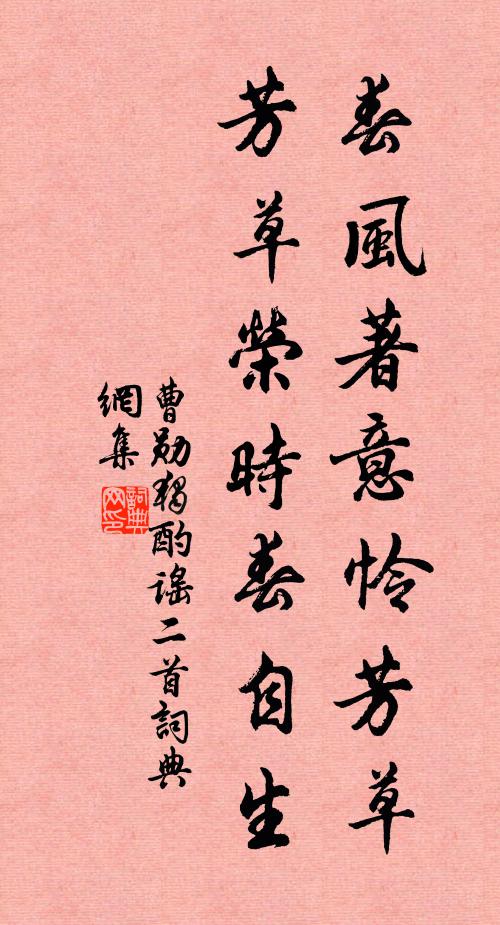 春風著意怜芳草
芳草榮時春自生
曹勛獨酌謠二首詞典
網集
詞典
网印